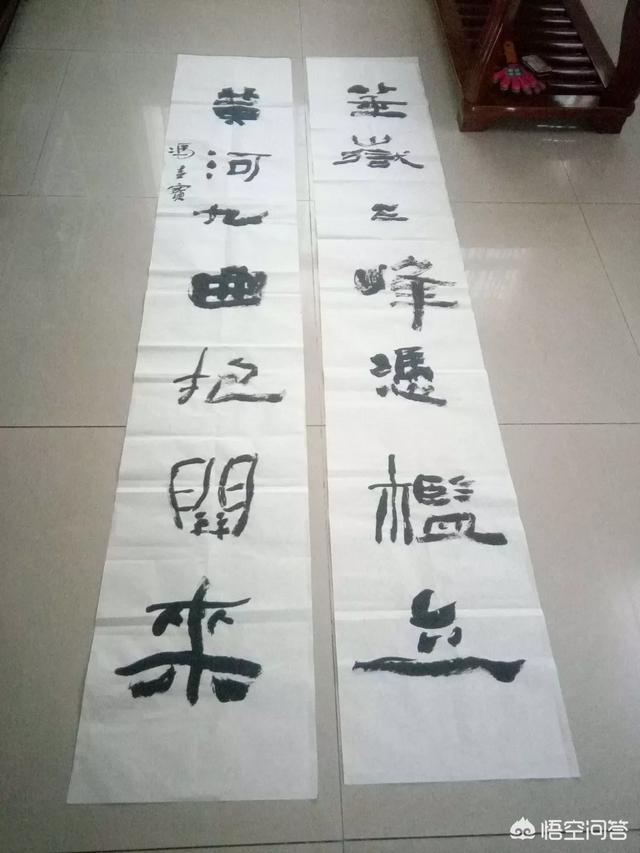 華嶽三峰憑檻立
黄河九曲抱關來
馮 寶
悟空问答